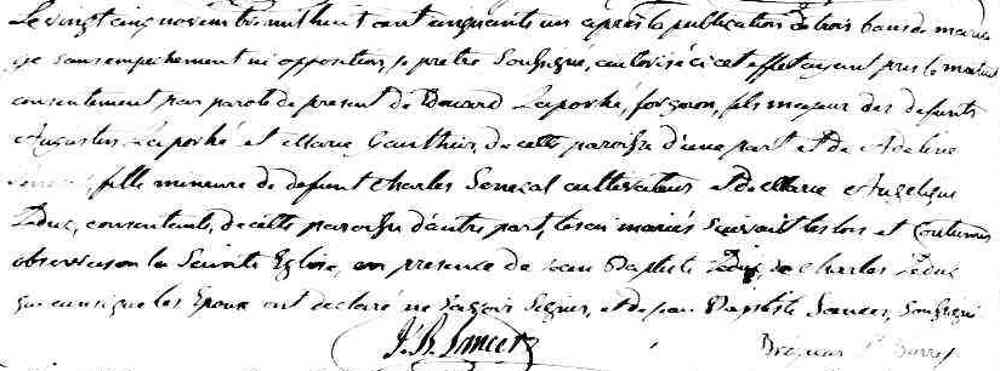 Le vingt cinq novembre mil huit cent cinquante un après la publication de trois bans de maria
ge sans empechement ni opposition, je prêtre Soussigné, autorisé à cet effet ayant pris le mutuel
consentement par parole de present de Edouard Laporte, forgeron, fils majeur des defunts
Augustin Laporte et Marie Gauthier, de cette paroisse d'une part et de Adeline
fille mineure de defunt Charles Senecal cultivateur et de Marie Angelique
Leduc, consentante, de cette paroisse d'autre part, les ai mariés suivant les lois et Coutumes
observés en la Sainte Eglise, en presence de Jean Baptiste Leduc, de Charles Leduc
qui ainsi que les Epoux ont declaré ne savoir Signer, et de Jean Baptiste Soussigné
J. B.
Ptre